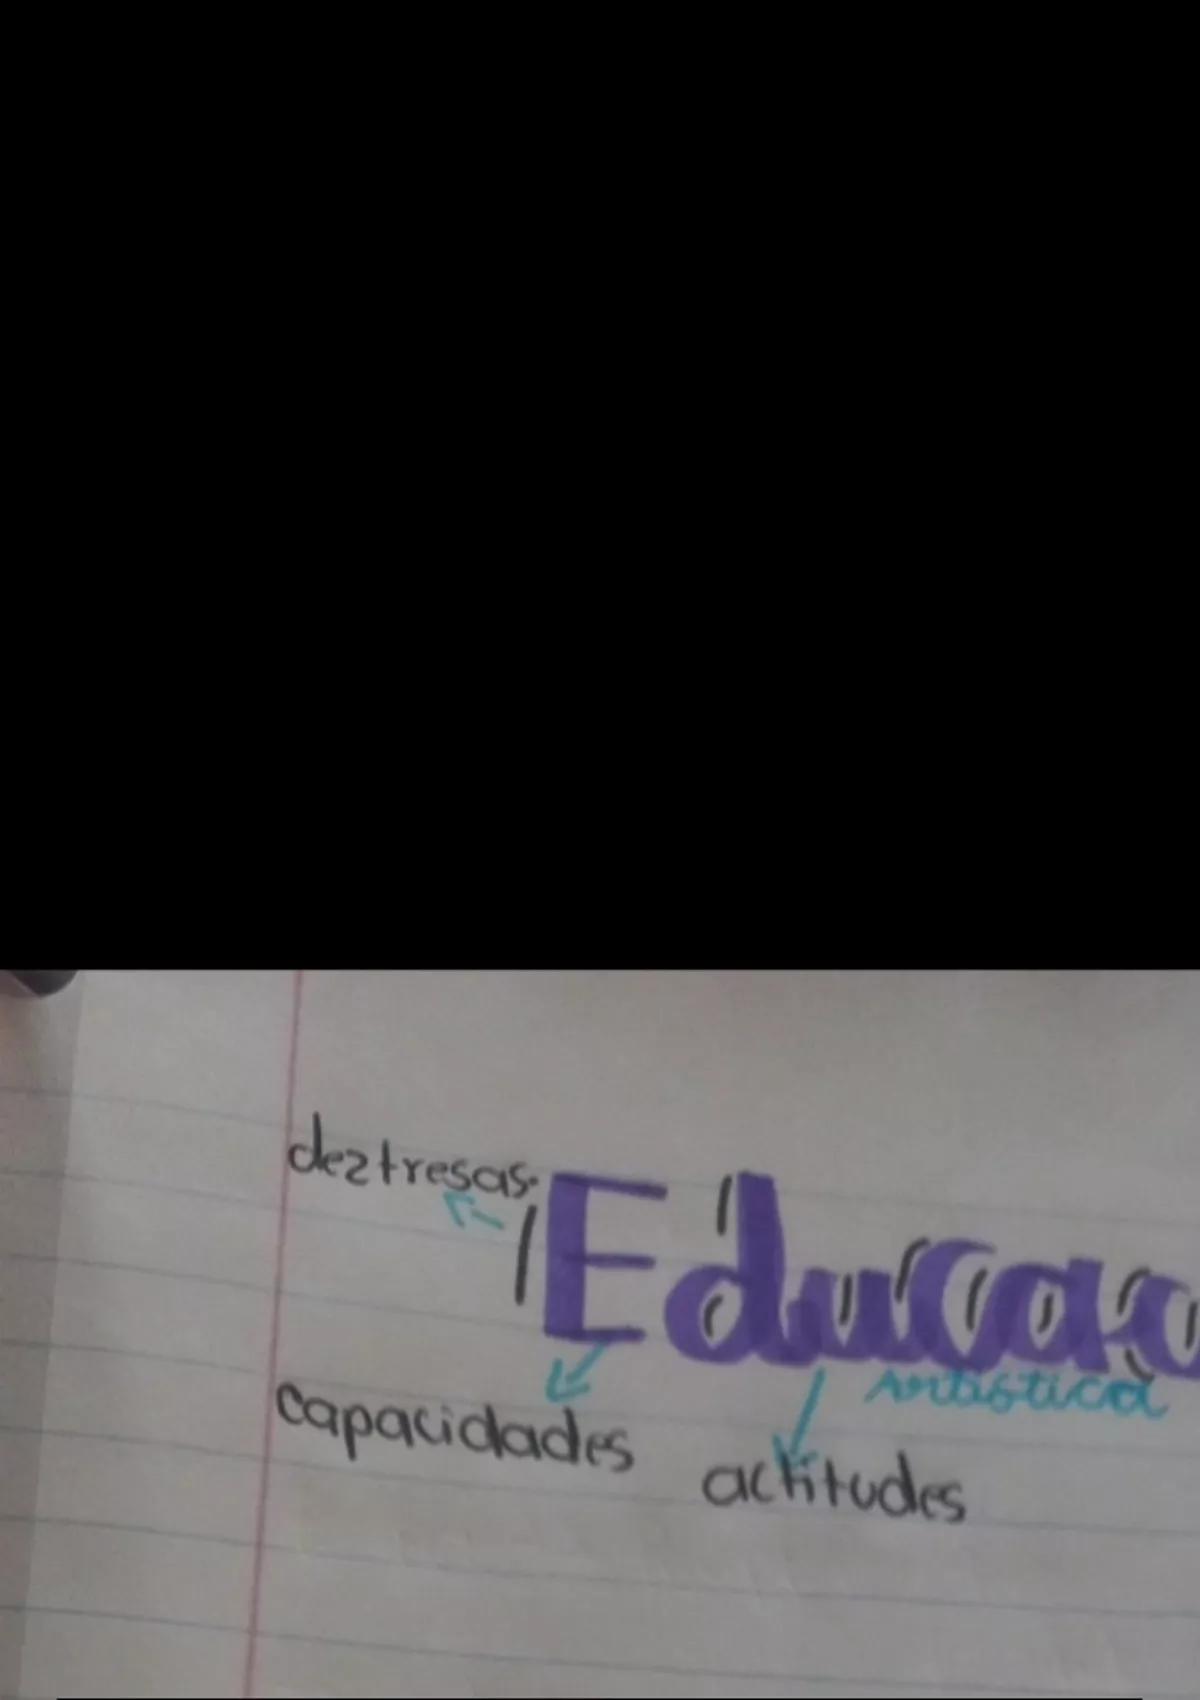 deztresas.
Educac
Artística
capacidades
actitudes